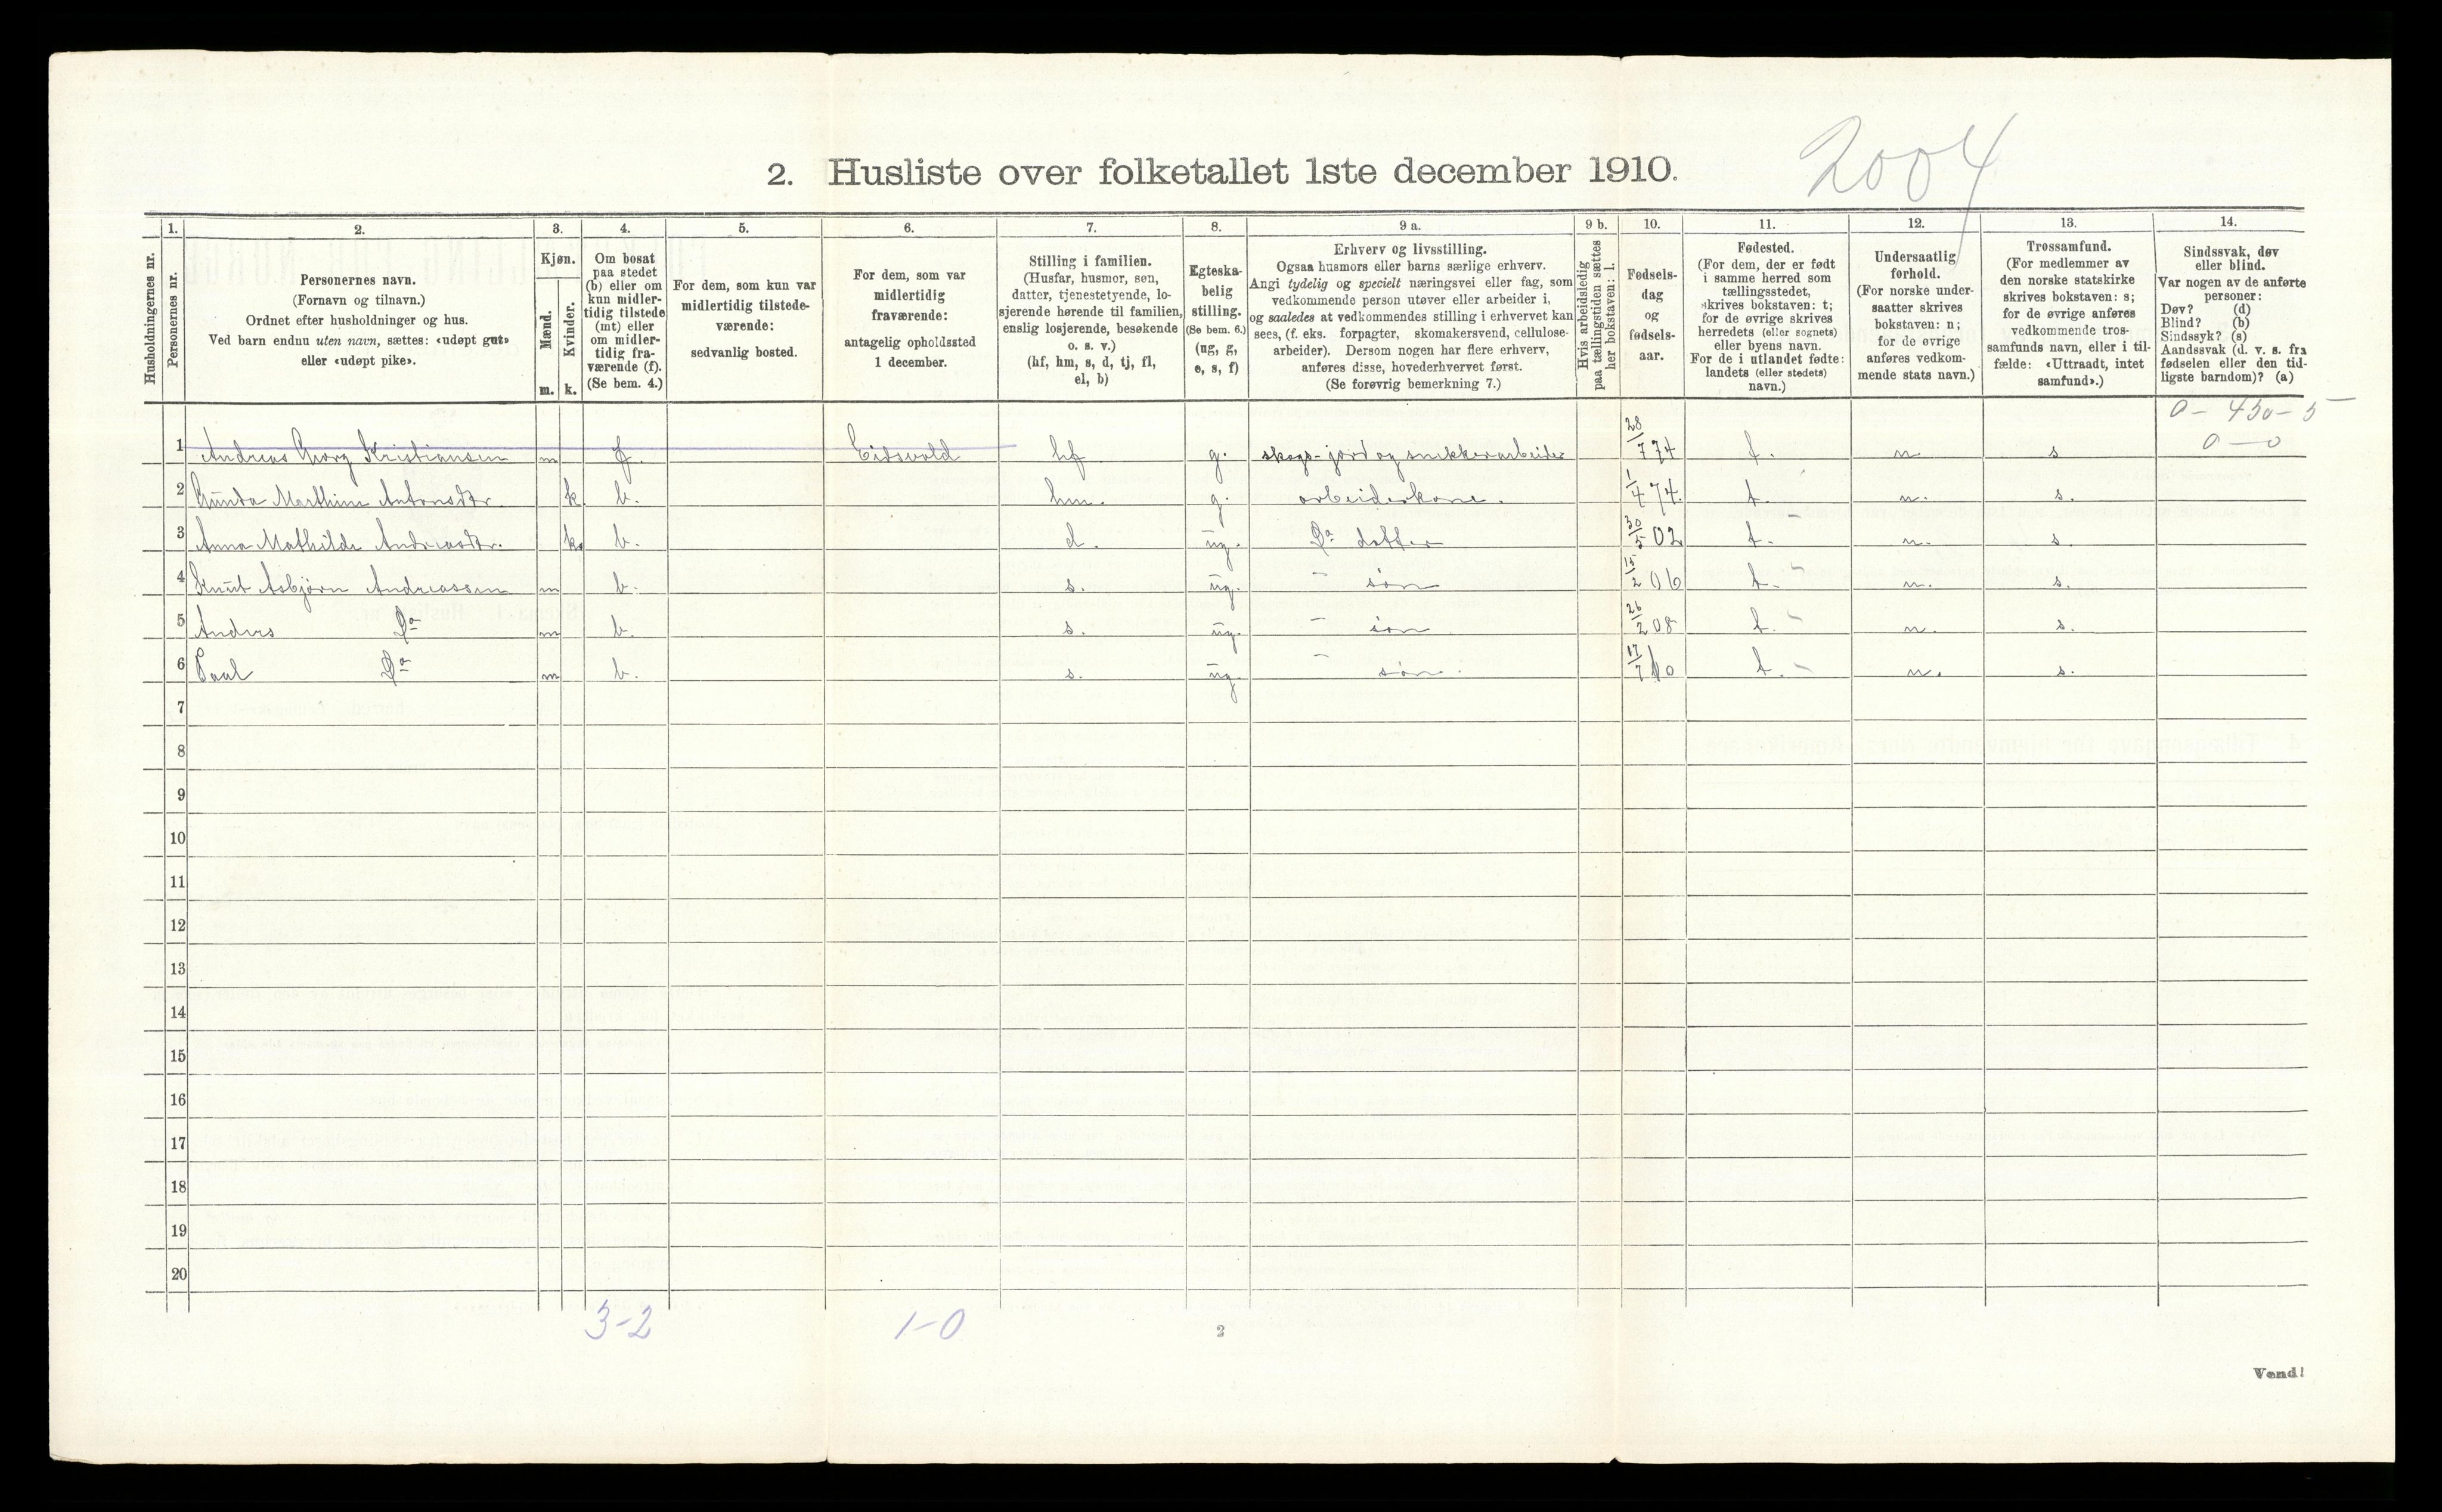 2004
2. Husliste over folketallet 1ste december 1910.
Husholdningernes nr.
1.
Personernes nr.
2.
Personernes navn.
(Fornavn og tilnavn.)
Ordnet efter husholdninger og hus.
Ved barn endnu uten navn, sættes: «udøpt gut»
eller «udøpt pike».
3.
Kjøn.
Mænd.
Kvinder.
m. k.
4.
Om bosat
paa stedet
(b) eller om
kun midler-
tidig tilstede
(mt) eller
om midler-
tidig fra-
værende (f).
(Se bem. 4.)
5.
For dem, som kun var
midlertidig tilstede-
værende:
sedvanlig bosted.
6.
For dem, som var
midlertidig
fraværende:
antagelig opholdssted
1 december.
7.
Stilling i familien.
(Husfar, husmor, søn,
datter, tjenestetyende, lo-
sjerende hørende til familien,
enslig losjerende, besøkende
o. s. v.)
(hf, hm, s, d, tj, fl,
el, b)
8.
Egteska-
belig
stilling.
(Se bem. 6.)
(ug, g,
e, s, f)
9 a.
Erhverv og livsstilling.
Ogsaa husmors eller barns særlige erhverv.
Angi tydelig og specielt næringsvei eller fag, som
vedkommende person utøver eller arbeider i,
og saaledes at vedkommendes stilling i erhvervet kan
sees, (f. eks. forpagter, skomakersvend, cellulose-
arbeider). Dersom nogen har flere erhverv,
anføres disse, hovederhvervet først.
(Se forøvrig bemerkning 7.)
9 b.
Hvis arbeidsledig
paa tællingstiden sættes
her bokstaven: l.
10.
Fødsels-
dag
og
fødsels-
aar.
11.
Fødested.
(For dem, der er født
i samme herred som
tællingsstedet,
skrives bokstaven: t;
for de øvrige skrives
herredets (eller sognets)
eller byens navn.
For de i utlandet fødte:
landets (eller stedets)
navn.)
12.
Undersaatlig
forhold.
(For norske under-
saatter skrives
bokstaven: n;
for de øvrige
anføres vedkom-
mende stats navn.)
13.
Trossamfund.
(For medlemmer av
den norske statskirke
skrives bokstaven: s;
for de øvrige anføres
vedkommende tros-
samfunds navn, eller i til-
fælde: «Uttraadt, intet
samfund».)
14.
Sindssvak, døv
eller blind.
Var nogen av de anførte
personer:
Døv? (d)
Blind? (b)
Sindssyk? (s)
Aandssvak (d. v. s. fra
fødselen eller den tid-
ligste barndom)? (a)
0 - 450 - 5
0 - 0
1 Andreas Georg Kristiansen m f. Eidsvold hf g. skogs- jord og snekkerarbeider 28/7 74 t. n s
2 Gunda Marthine Antonsdtr. k. b. hm. g. arbeiderkone. 1/4 74. t. n. s.
3 Anna Mathilde Andreasdtr. k. b. d. ug. Do datter 30/5 02 t. n. s
4 Knut Asbjørn Andreassen m b. s. ug. - søn 15/2 06 t. n. s.
5 Anders Do m b. s. ug. - søn 26/2 08 t. n. s.
6 Paul Do m b. s. ug. - søn. 17/7 10 t. n. s.
7
8
9
10
11
12
13
14
15
16
17
18
19
20
3-2 1-0
2
Vend!